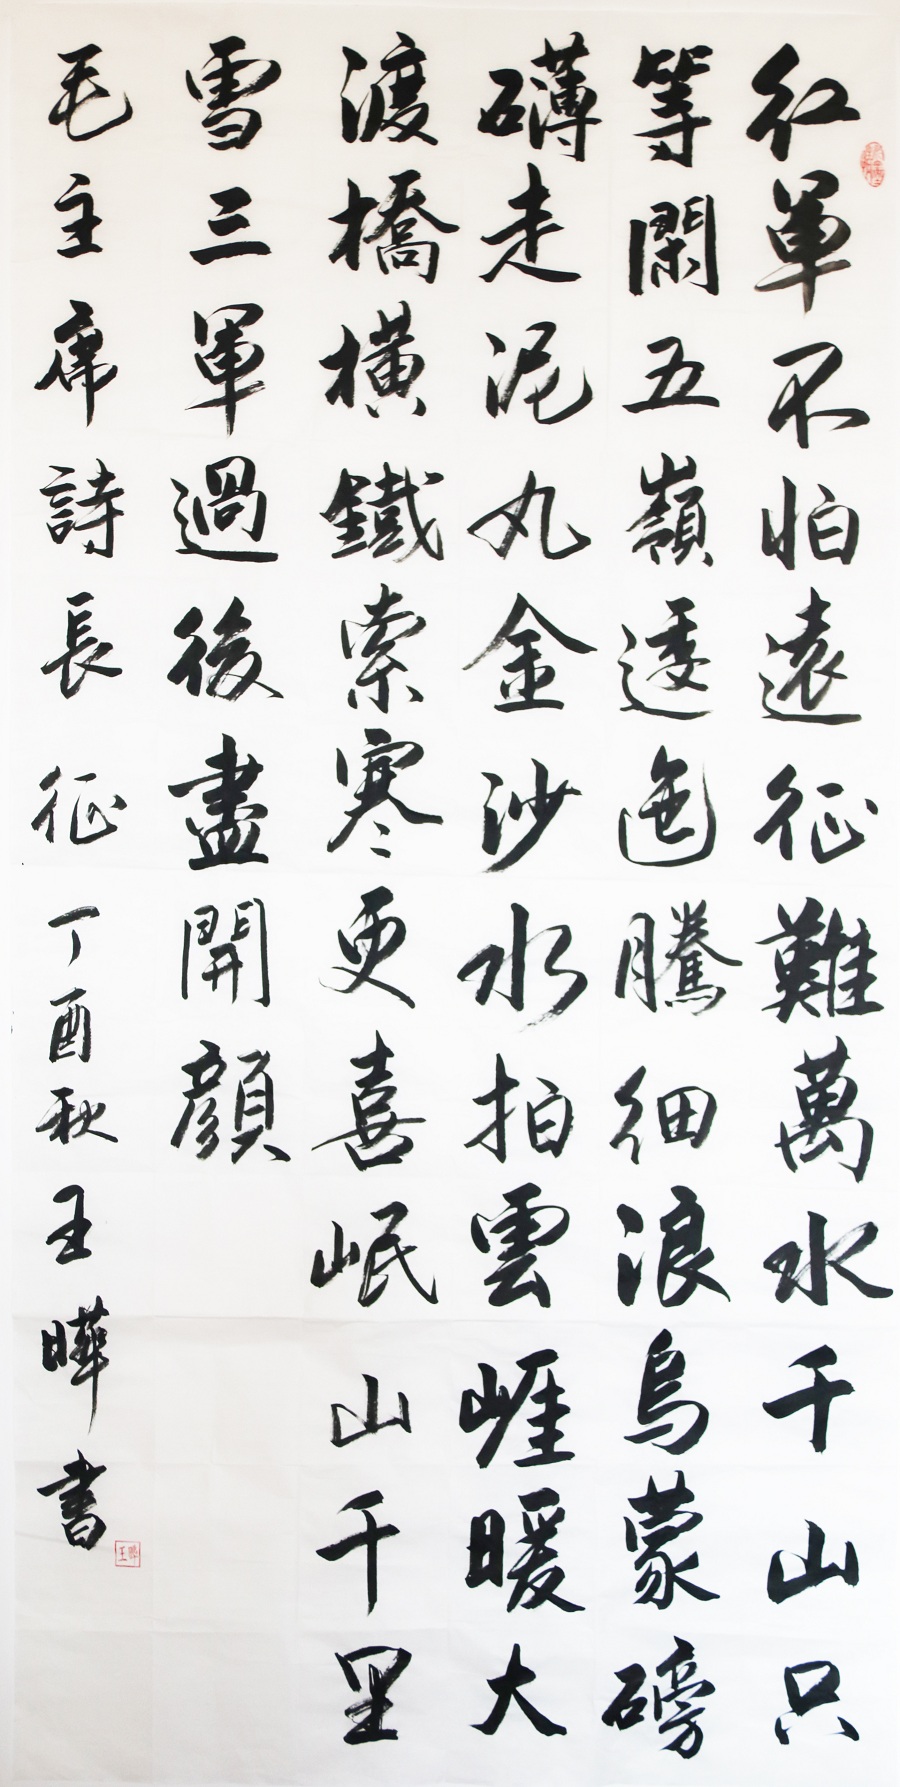 紅軍不怕遠征難萬水千山只
等閑五嶺逶迤騰細浪烏蒙磅
礴走泥丸金沙水拍雲崖暖大
渡橋橫鐵索寒更喜岷山千里
雪三軍過後盡開顏
毛主席詩長征 丁酉秋 王曄書